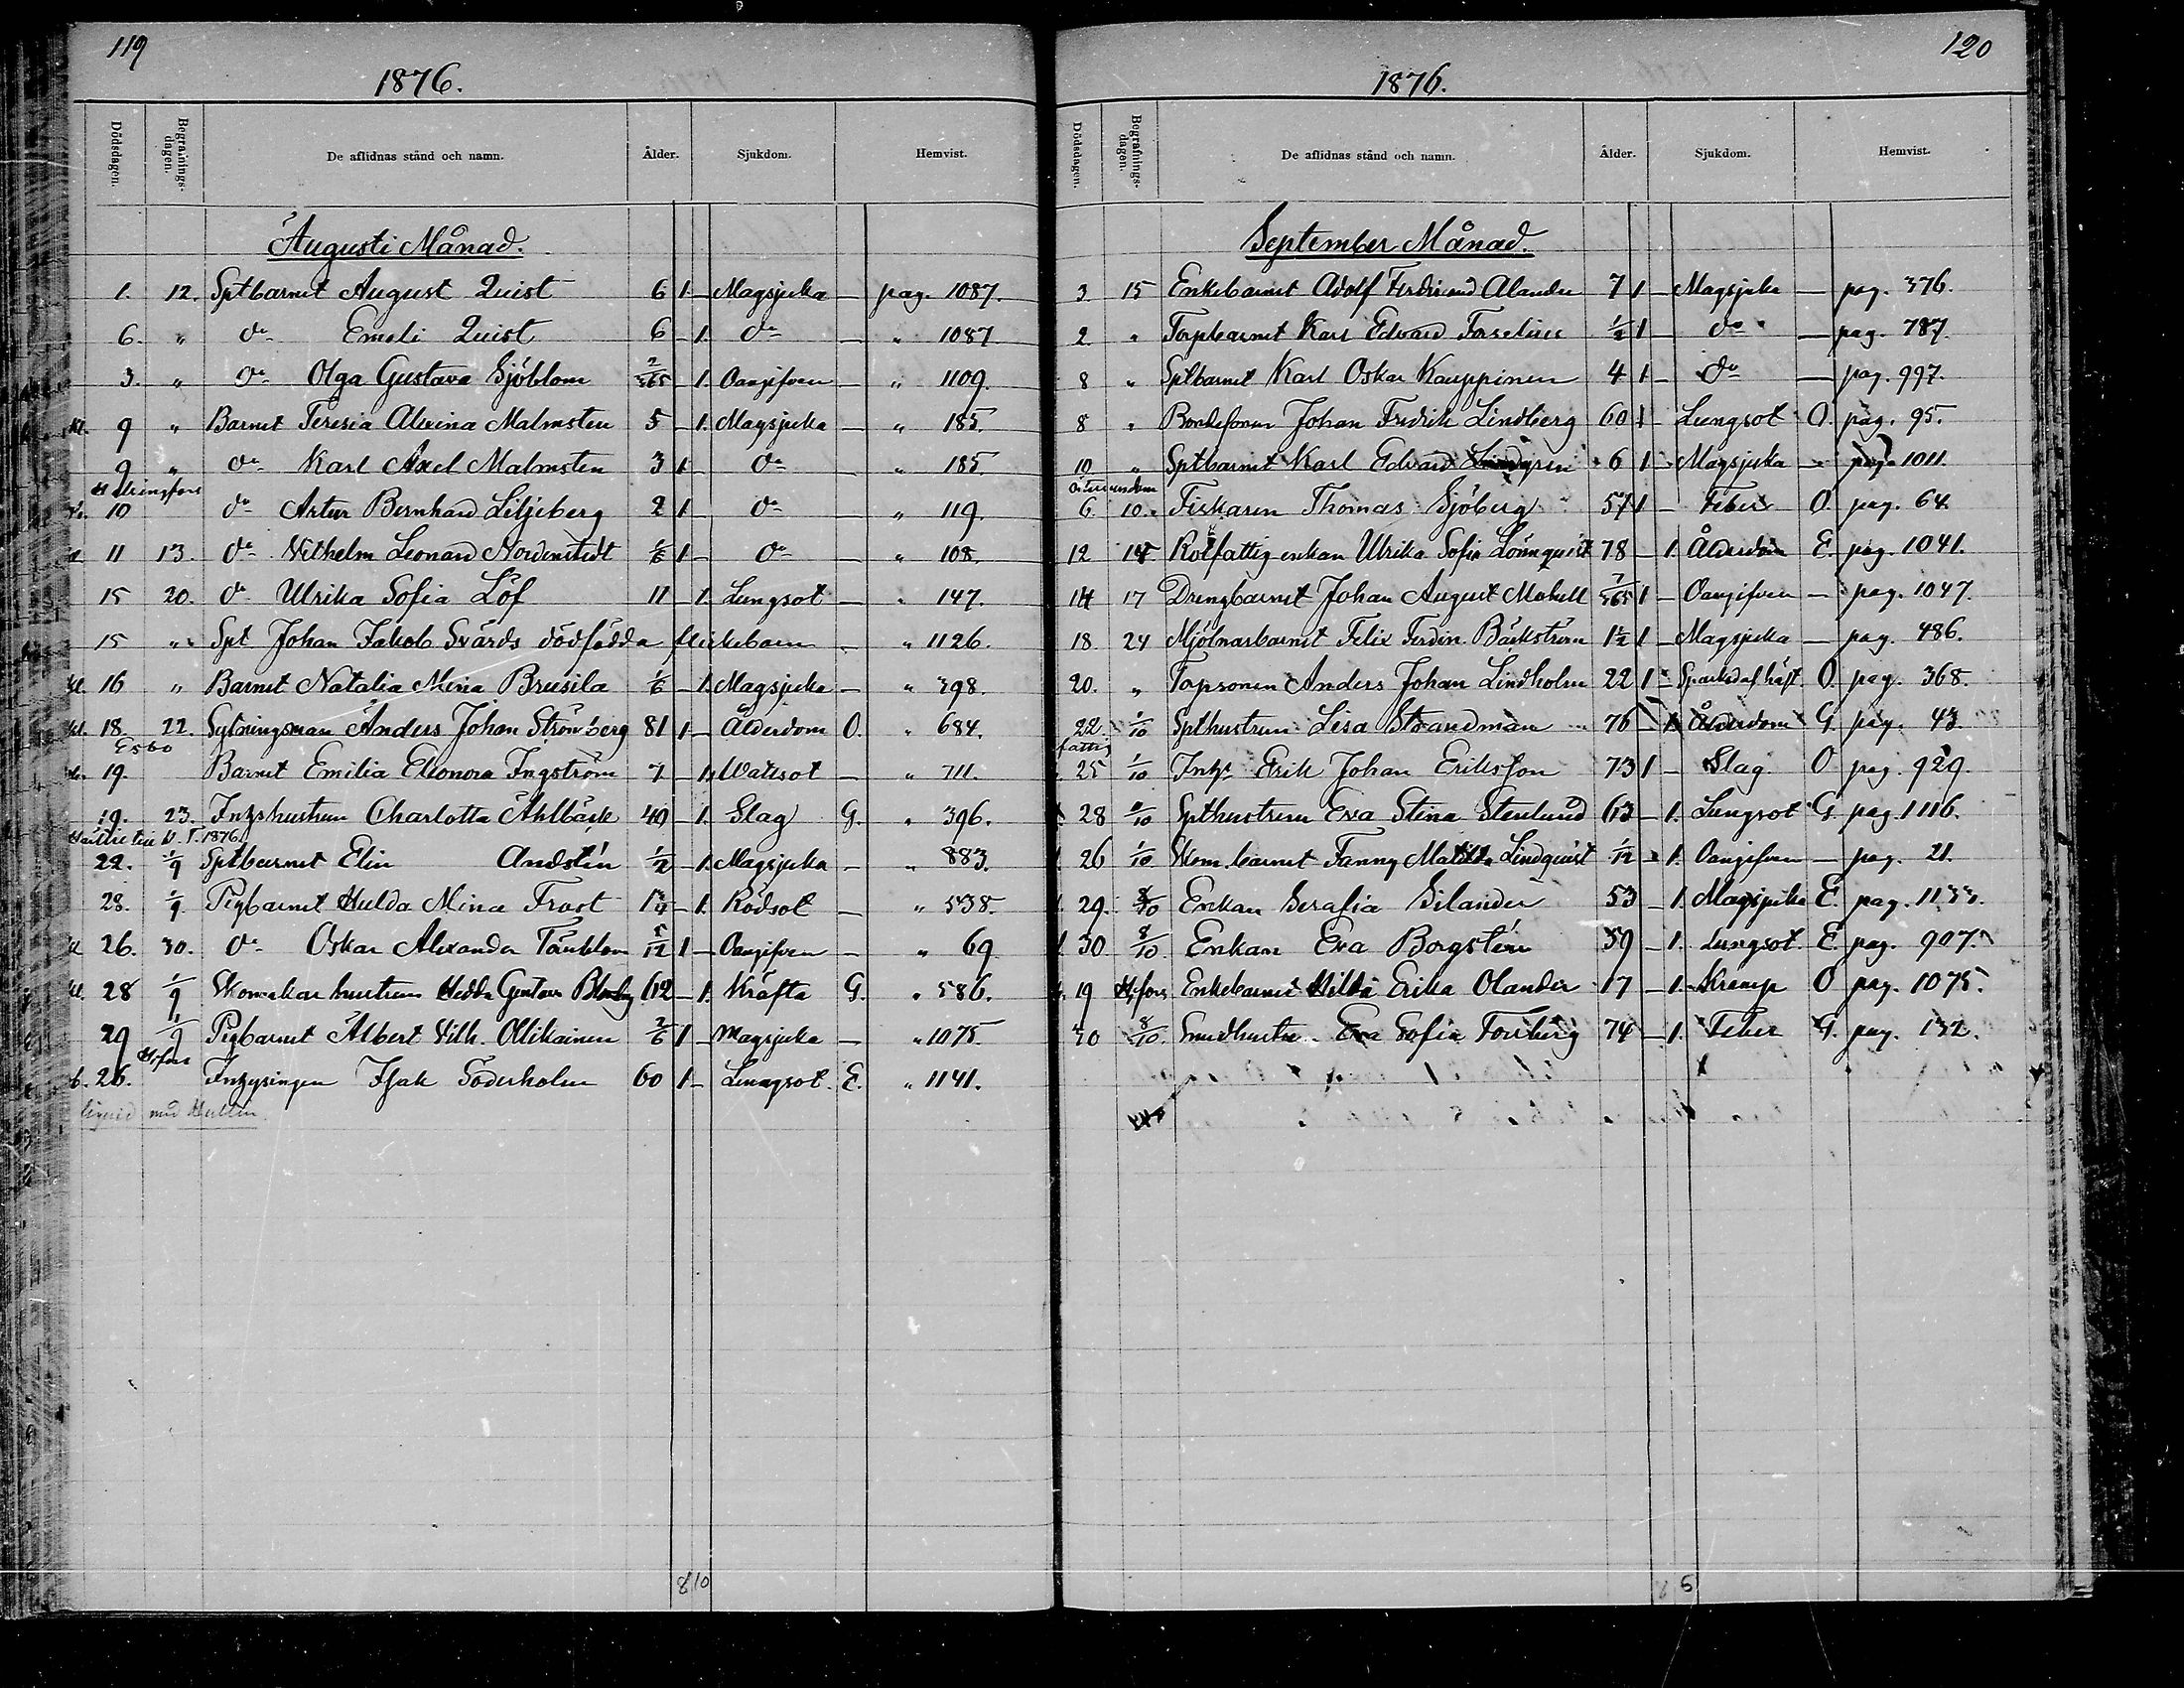 119
1876.
Dödsdagen. Begrafnings-dagen. De aflidnas stånd och namn. Ålder. Sjukdom. Hemvist.
Augusti Månad.
1. 12. Sptbarnet August Quist 6 1 — Magsjuka — pag. 1087.
6. " do Emeli Quist 6 — 1. do — " 1087.
3. " do Olga Gustava Sjöblom 2/365 — 1. Oangifven — " 1109.
9 " Barnet Teresia Alvina Malmsten 5 — 1. Magsjuka — " 185.
9 " do Karl Axel Malmsten 3 1 — do — " 185.
Helsingfors
10 do Artur Bernhard Liljeberg 2 1 — do — " 119.
11 13. do Vilhelm Leonard Nordenstedt 1/6 1 — do — " 108.
15 20. do Ulrika Sofia Löf 11 — 1. Lungsot — " 147.
15 " Spt Johan Jakob Svärds dödfödda flickebarn — " 1126.
16 " Barnet Natalia Mina Brusila 1/6 — 1. Magsjuka — " 398.
18. 22. Sytningsman Anders Johan Strömberg 81 1 — Ålderdom O. " 684.
Esbo
19. Barnet Emilia Eleonora Ingström 7 — 1. Wattsot — " 711.
19. 23. Inhyshustrun Charlotta Ahlbäck 49 — 1. Slag G. " 396.
1876.
22. 1/9 Sptbarnet Elin Andstén 1/2 — 1. Magsjuka — " 883.
28. 1/9. Pigbarnet Hulda Mina Frost 1 3/4 — 1. Rödsot — " 538.
26. 30. do Oskar Alexander Törnblom 5/12 1 — Oangifven — " 69.
28 1/9 Skomakarhustrun Hedda Gustava 62 — 1. Kräfta G. " 586.
29 1/9 Pigbarnet Albert Vilh. Ollikainen 2/6 1 — Magsjuka — " 1075.
H:fors
26. Inhysingen Isak Söderholm 60 1 — Lungsot E. " 1141.
8 10
120
1876.
Dödsdagen. Begrafnings-dagen. De aflidnas stånd och namn. Ålder. Sjukdom. Hemvist.
September Månad.
3 15 Enkebarnet Adolf Ferdinand Alander 7 1 — Magsjuka — pag. 376.
2. " Torpbarnet Karl Edvard Forselius 1/2 1 — do — pag. 787.
8 " Sptbarnet Karl Oskar Kauppinen 4 1 — do — pag. 997.
8 " Bondesonen Johan Fredrik Lindberg 60 1 — Lungsot O. pag. 95.
10 " Sptbarnet Karl Edvard Lindgren 6 1 — Magsjuka — pag. 1011.
Östersundom
6. 10. Fiskaren Thomas Sjöberg 57 1 — Feber O. pag. 64.
12 Rotfattig enkan Ulrika Sofia Lönnquist 78 — 1. Ålderdom E. pag. 1041.
14 17 Drengbarnet Johan August Mobell 7/365 1 — Oangifven — pag. 1047.
18. 24 Mjölnarbarnet Felix Ferdin. Bäckström 1 1/2 1 — Magsjuka — pag. 486.
20. " Torpsonen Anders Johan Lindholm 22 1 — Sparkad af häst. O. pag. 368.
22. 1/10 Spthustrun Lisa Strandman 76 — 1. Ålderdom G. pag. 43.
fattig
25 1/10 Inhys Erik Johan Eriksson 73 1 — Slag O. pag. 929.
28 /10 Spthustrun Eva Stina Stenlund 63 — 1. Lungsot G. pag. 1116.
26 1/10 Skom.barnet Fanny Matilda Lindquist 1/12 — 1. Oangifven — pag. 21.
29. 8/10 Enkan Serafia Silander 53 — 1. Magsjuka E. pag. 1133.
30 8/10 Enkan Eva Borgstén 59 — 1. Lungsot E. pag. 907.
19 H:fors Enkebarnet Hilda Erika Olander 17 — 1. Kramp O pag. 1075.
30 8/10. Smedhustru Eva Sofia Forsberg 74 — 1. Feber G. pag. 132.
6